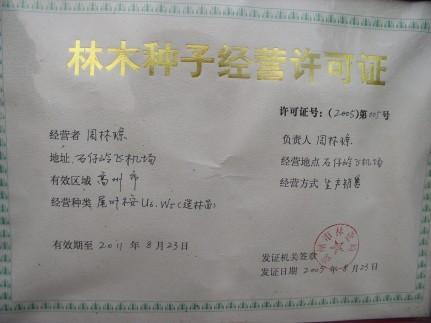 林木种子经营许可证
许可证号:(2005)第005号
经营者 周林琼 负责人 周林琼
地址 石仔岭飞机场 经营地点 石仔岭飞机场
有效区域 高州市 经营方式 生产销售
经营种类 尾叶桉U6.W5(造林苗)
有效期至 2011 年 8 月 23 日 发证机关签章
发证日期 2005 年 8 月 23 日